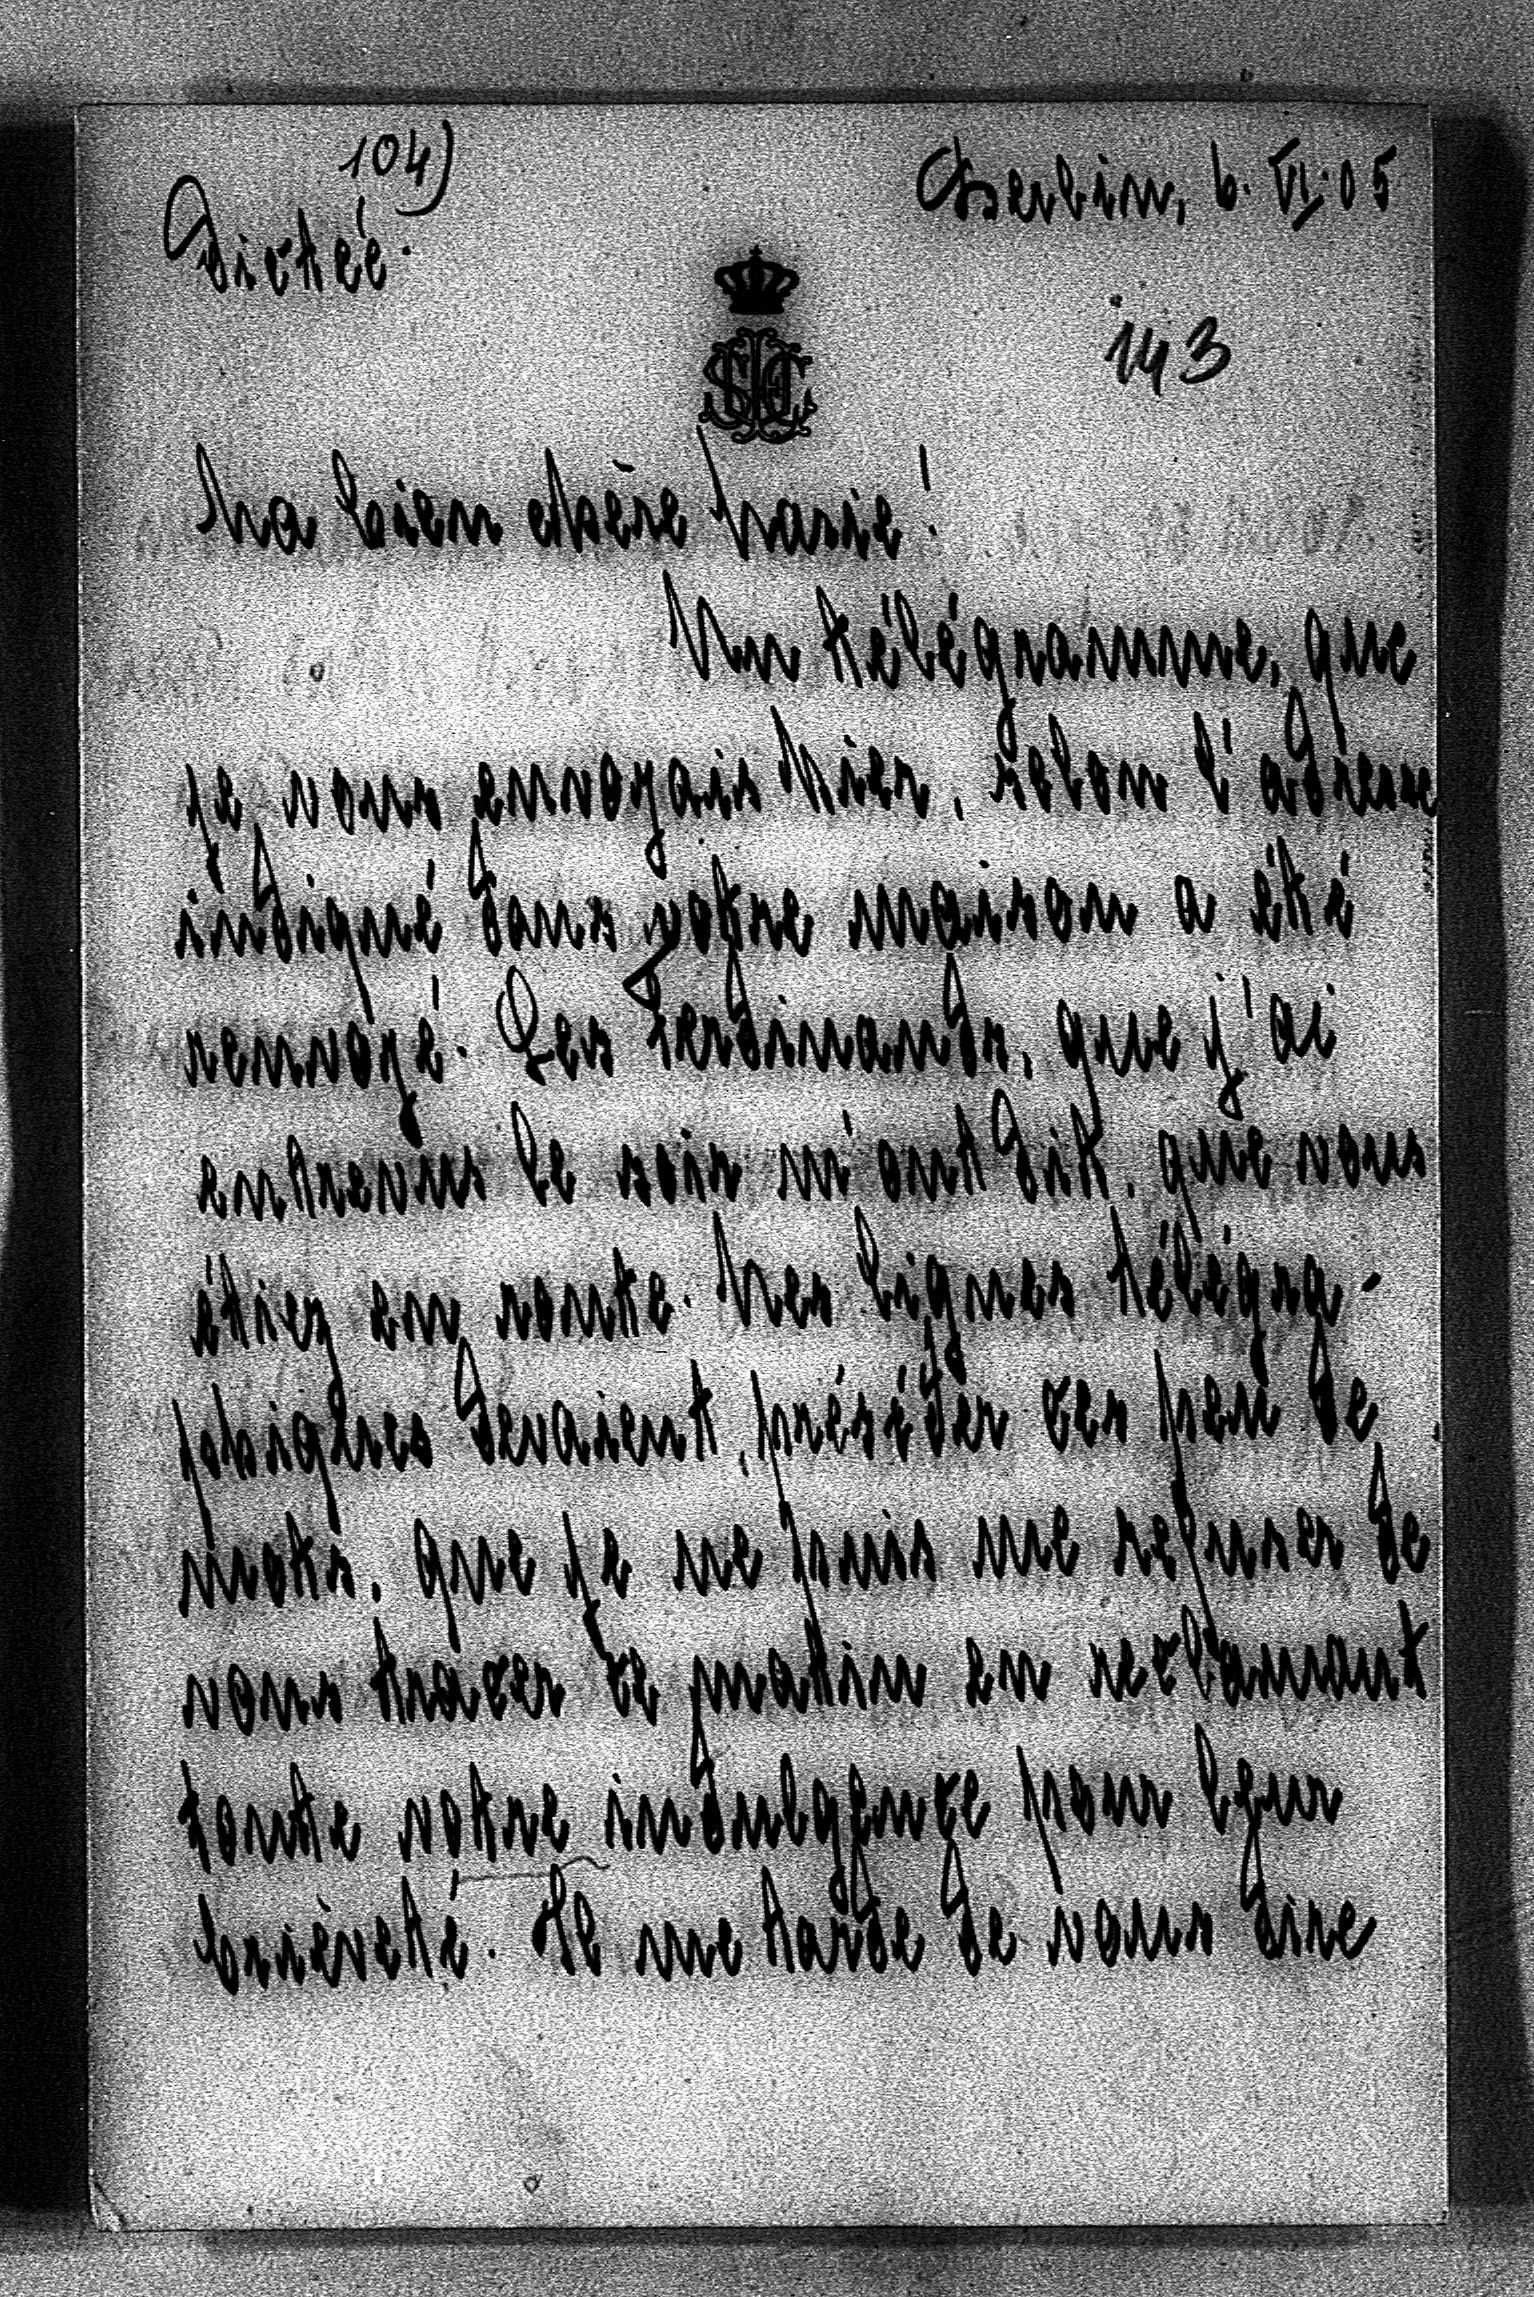 104)
Dictée.
Cserbin, 6. VI. 05
143
Ma bien chère Marie!
Un télégramme, que
je vous envoyais hier, selon l'adresse
indiqué dans votre maison a été
renvoyé. Les Ferdinands, que j'ai
entrevus le soir m'ont dit, que vous
étiez en route. Mes lignes télégra-
phiques devaient précéder ces peu de
mots, que je ne puis me refuser de
vous tracer ce matin en reclamant
toute votre indulgence pour leur
brièveté. Il me tarde de vous dire